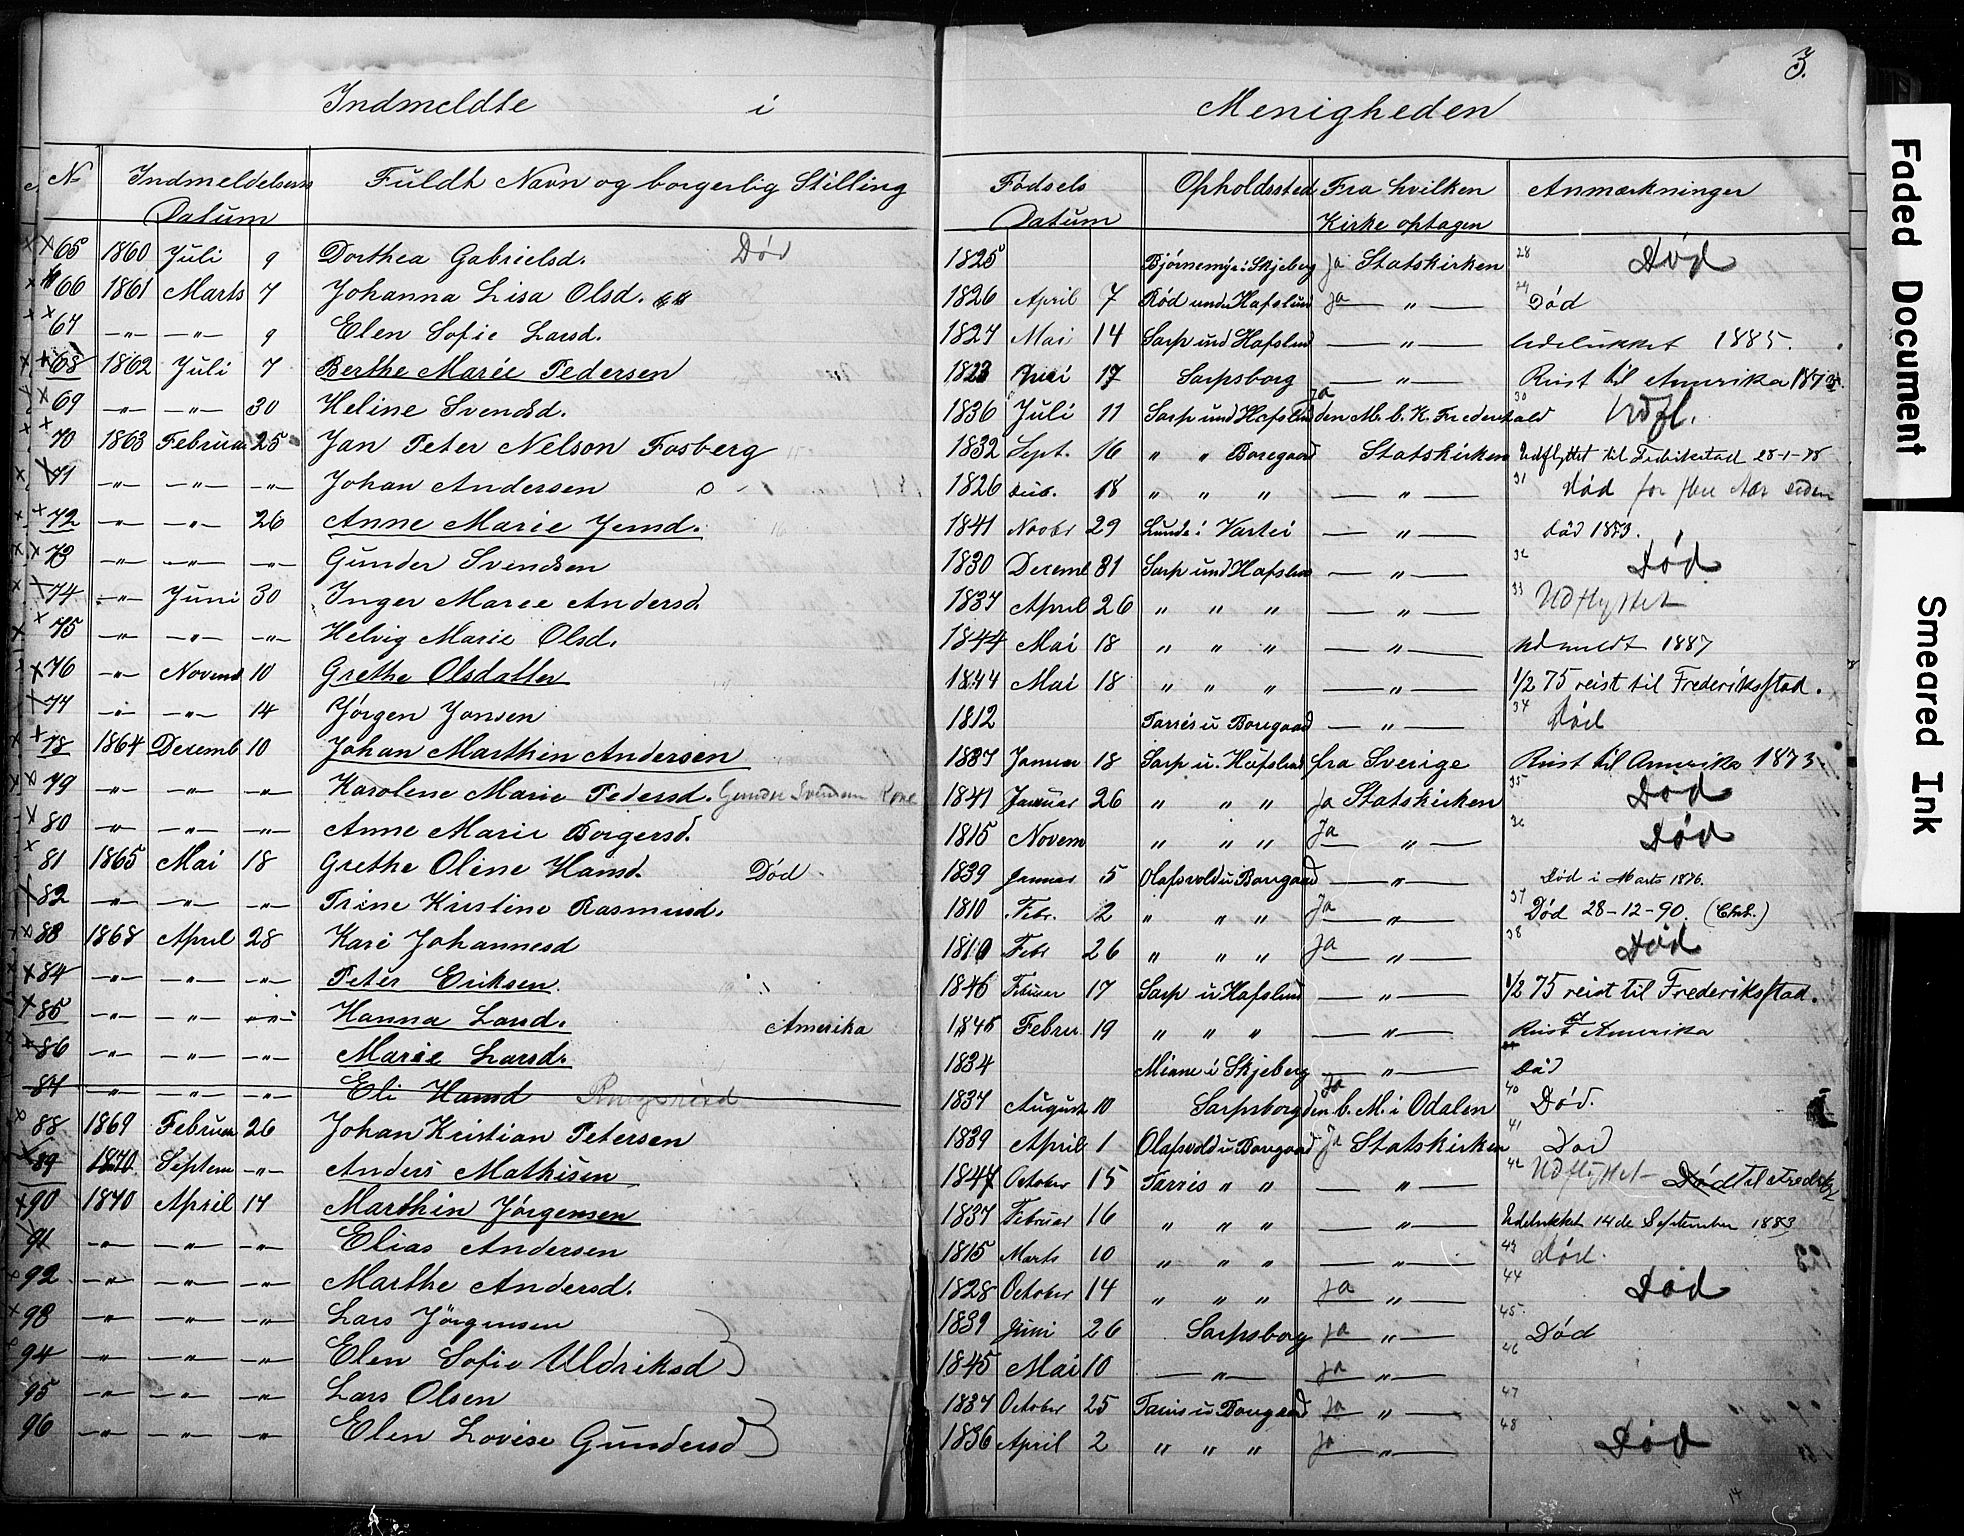 3.
Indmeldte i Menigheden
No Indmeldelsens Datum Fuldt Navn og borgerlig Stilling Fødsels Datum Opholdssted Fra hvilken Kirke optagen Anmærkninger
65 1860 Juli 9 Dorthea Gabrielsd. Død 1825 Bjørnemyr i Skjeberg Ja Statskirken 28 Død
66 1861 Marts 7 Johanna Lisa Olsd. 1826 April 7 Rød under Hafslund Ja — „ — 29 Død
67 — „ — — „ — 9 Elen Sofie Larsd. 1827 Mai 14 Sarp und Hafslund — „ — Udelukket 1885.
68 1862 Juli 7 Berthe Marie Pedersen 1823 Juni 17 Sarpsborg — „ — Reist til Amerika
69 — „ — — „ — 30 Heline Svendsd. 1836 Juli 11 Sarp und Hafslund Ja den M. b. K. Frederikshald 30 Udfl.
70 1863 Februar 25 Jan Peter Nelson Fosberg 1832 Sept. 16 „ „ Boregaard Statskirken Udflyttet til Fredrikstad 28-1-78
71 — „ — — „ — — „ — Johan Andersen 1826 18 „ „ „ — „ — 31 Død for flere Aar siden
72 — „ — — „ — 26 Anne Marie Jensd. 1841 Novbr 29 Lunde i Vartei — „ — Død 1873.
73 — „ — — „ — — „ — Gunder Svendsen 1830 Decemb 31 Sarp und Hafslund — „ — 32 Død
74 — „ — Juni 30 Inger Marie Andersd. 1837 April 26 „ „ „ — „ — 33 Udflyttet
75 — „ — — „ — — „ — Helvig Marie Olsd. 1844 Mai 18 „ „ „ — „ — Udmeldt 1887
76 — „ — Novemb 10 Grethe Olsdatter 1844 Mai 18 „ „ „ — „ — 1/2 75 reist til Frederiksstad.
77 — „ — — „ — 14 Jørgen Jonsen 1812 Tarris u Boregaard — „ — 34 Død
78 1864 Decemb 10 Johan Marthin Andersen 1837 Januar 18 Sarp u. Hafslund fra Sverige Reist til Amerika 1873
79 — „ — — „ — — „ — Karolene Marie Pedersd. Gunder Svendsen Kone 1841 Januar 26 „ „ „ Ja Statskirken 35 Død
80 — „ — — „ — — „ — Anne Marie Borgersd. 1815 Novem „ „ „ Ja — „ — 36 Død
81 1865 Mai 18 Grethe Oline Hansd. Død 1839 Januar 5 Olafsvold u Boregaard — „ — Død i Marts 1876.
82 — „ — — „ — — „ — Trine Kristine Rasmusd. 1810 Febr. 2 „ „ „ Ja — „ — 37 Død 28-12-90. (Chr.)
83 1868 April 28 Kari Johannesd 1810 Febr 26 „ „ „ Ja — „ — 38 Død
84 — „ — — „ — — „ — Peter Eriksen. 1846 Februar 17 Sarp u Hafslund — „ — 1/2 75 reist til Frederiksstad.
85 — „ — — „ — — „ — Hanna Larsd. Amerika 1845 Februar 19 „ „ „ — „ — Reist til Amerika
86 — „ — — „ — — „ — Marie Larsd. 1834 Minne i Skjeberg — „ — Død
87 — „ — — „ — — „ — Eli Hansd 1837 August 10 Sarpsborg Ja den b. M. i Odalen 40 Død.
88 1869 Februar 26 Johan Kristian Petersen 1839 April 1 Olafsvold u Boregaard Ja Statskirken 41 Død
89 1870 Septem — „ — Anders Mathisen 1847 October 15 Tarris „ „ — „ — 42 Udflyttet Død til Fredriks
90 1870 April 17 Marthin Jørgensen 1837 Februar 16 „ „ „ — „ — Udelukket 14de September 1883
91 — „ — — „ — — „ — Elias Andersen 1815 Marts 10 „ „ „ — „ — 43 Død.
92 — „ — — „ — — „ — Marthe Andersd. 1828 October 14 „ „ „ Ja — „ — 44 Død
93 — „ — — „ — — „ — Lars Jørgensen 1839 Juni 26 Sarpsborg Ja — „ — 45 Død
94 — „ — — „ — — „ — Elen Sofie Uldriksd 1845 Mai 10 — „ — Ja — „ — 46
95 — „ — — „ — — „ — Lars Olsen 1837 October 25 Tarris u Boregaard Ja — „ — 47
96 — „ — — „ — — „ — Elen Lovise Gundersd 1836 April 2 „ „ „ Ja — „ — 48 Død
14
Faded Document
Smeared Ink